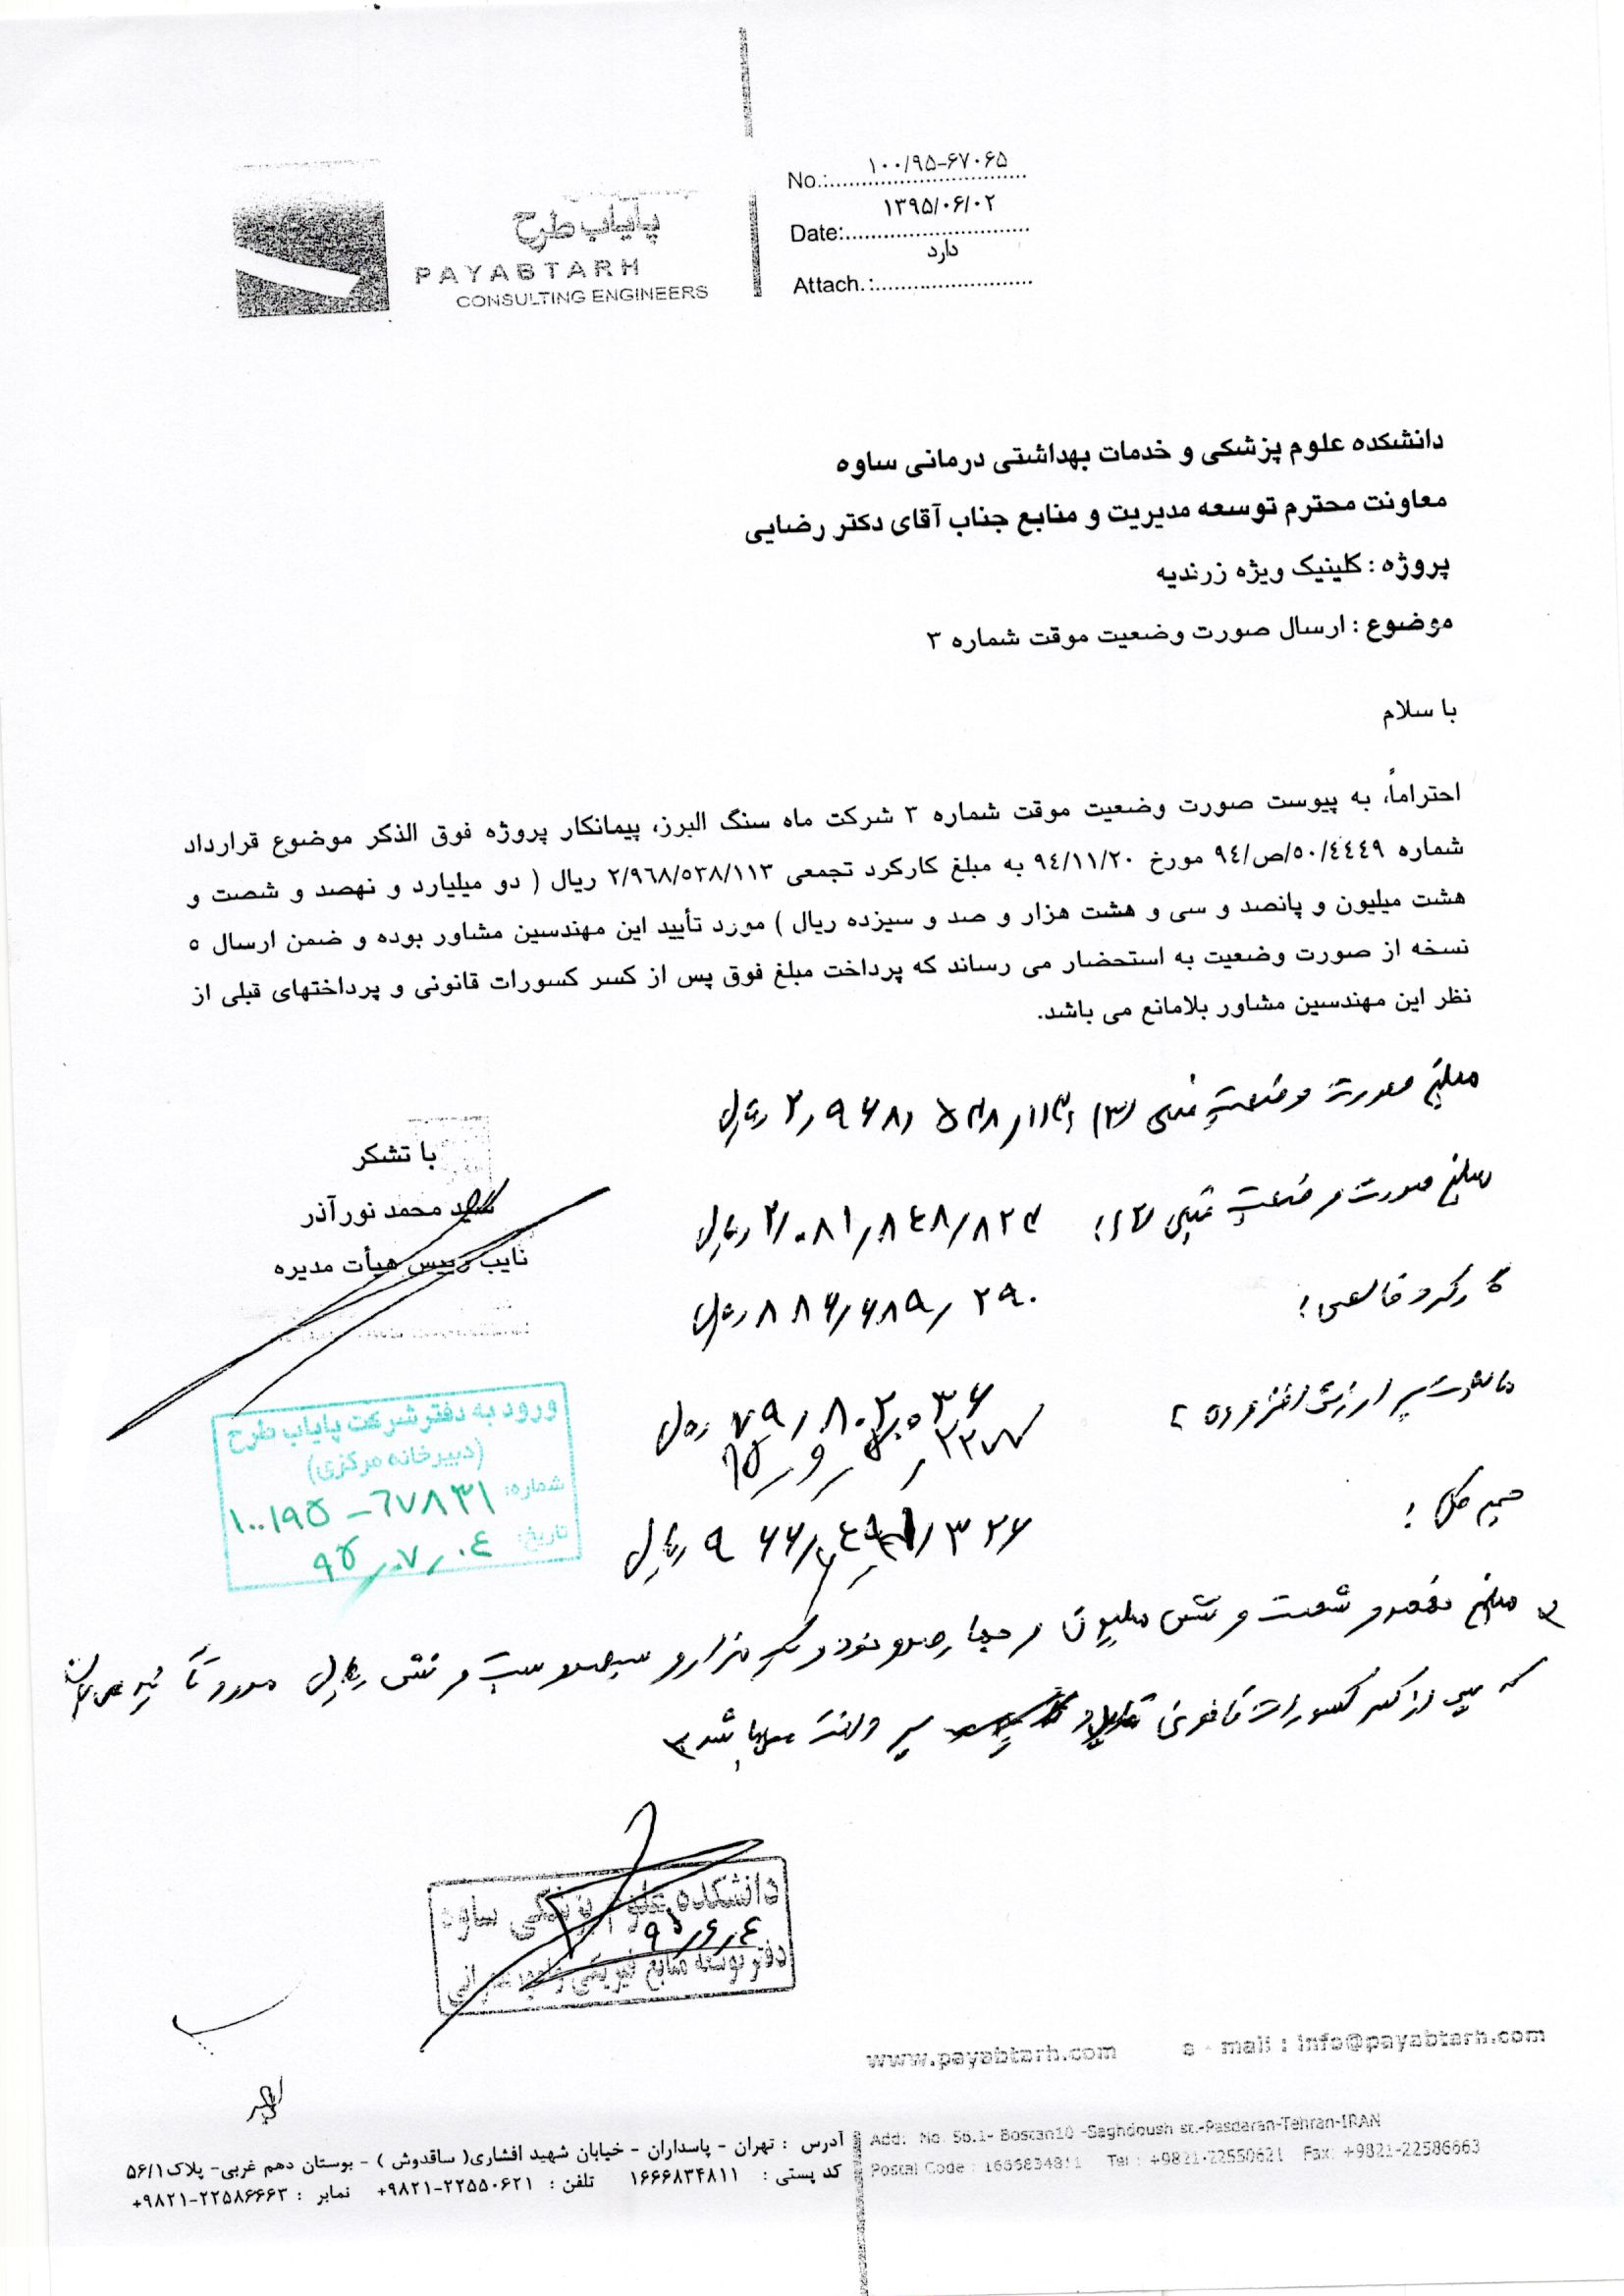 پایاب طرح
PAYABTARH
CONSULTING ENGINEERS
No.: ۱۰۰/۹۵-۶۷۰۶۵
Date: ۱۳۹۵/۰۶/۰۲
Attach.: دارد
دانشکده علوم پزشکی و خدمات بهداشتی درمانی ساوه
معاونت محترم توسعه مدیریت و منابع جناب آقای دکتر رضایی
پروژه : کلینیک ویژه زرندیه
موضوع : ارسال صورت وضعیت موقت شماره ۳
با سلام
احتراماً، به پیوست صورت وضعیت موقت شماره ۳ شرکت ماه سنگ البرز، پیمانکار پروژه فوق الذکر موضوع قرارداد
شماره ۵۰/٤٤٤۹/ص/۹٤ مورخ ۹٤/۱۱/۲۰ به مبلغ کارکرد تجمعی ۲/۹٦۸/۵۳۸/۱۱۳ ریال ( دو میلیارد و نهصد و شصت و
هشت میلیون و پانصد و سی و هشت هزار و صد و سیزده ریال ) مورد تأیید این مهندسین مشاور بوده و ضمن ارسال ۵
نسخه از صورت وضعیت به استحضار می رساند که پرداخت مبلغ فوق پس از کسر کسورات قانونی و پرداختهای قبلی از
نظر این مهندسین مشاور بلامانع می باشد.
با تشکر
سید محمد نورآذر
نایب رییس هیأت مدیره
مبلغ صورت وضعیت فعلی (۳) ۲,۹۶۸,۵۳۸,۱۱۳ ریال
مبلغ صورت وضعیت قبلی (۲): ۲,۰۸۱,۸٤۸,۸۲۳ ریال
کارکرد خالص: ۸۸۶,۶۸۹,۲۹۰ ریال
مالیات بر ارزش افزوده: ۷۹,۸۰۲,۰۳۶ ریال
جمع کل: ۹۶۶,٤۹۱,۳۲۶ ریال
مبلغ نهصد و شصت و شش میلیون و چهارصد و نود و یک هزار و سیصد و بیست و شش ریال مورد تأیید می باشد
که پس از کسر کسورات قانونی قابل پرداخت میباشد
ورود به دفتر شرکت پایاب طرح
(دبیرخانه مرکزی)
شماره: ۱۰۰/۹۵-٦۷۸۳۱
تاریخ: ۹۵/۰۷/۰٤
دانشکده علوم پزشکی ساوه
۹۵/۶/۰٤
دفتر توسعه منابع فیزیکی و امور عمرانی
www.payabtarh.com e - mail : info@payabtarh.com
آدرس : تهران - پاسداران - خیابان شهید افشاری( ساقدوش ) - بوستان دهم غربی- پلاک۵۶/۱
کد پستی : ۱۶۶۶۸۳۴۸۱۱ تلفن : ۲۲۵۵۰۶۲۱-۹۸۲۱+ نمابر : ۲۲۵۸۶۶۶۳-۹۸۲۱+
Add: No. 56.1- Bostan10 -Saghdoush st.-Pasdaran-Tehran-IRAN
Postal Code : 1666834811 Tel : +9821-22550621 Fax: +9821-22586663